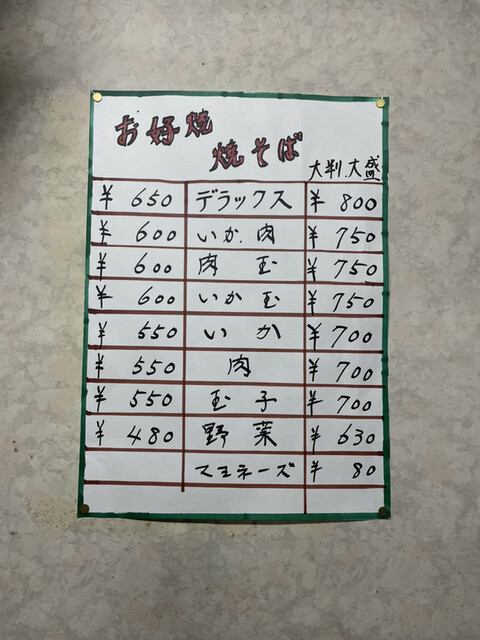 お好焼
焼そば
大判.大盛
¥ 650 デラックス ¥ 800
¥ 600 いか.肉 ¥ 750
¥ 600 肉 玉 ¥ 750
¥ 600 いか玉 ¥ 750
¥ 550 いか ¥ 700
¥ 550 肉 ¥ 700
¥ 550 玉子 ¥ 700
¥ 480 野菜 ¥ 630
マヨネーズ ¥ 80